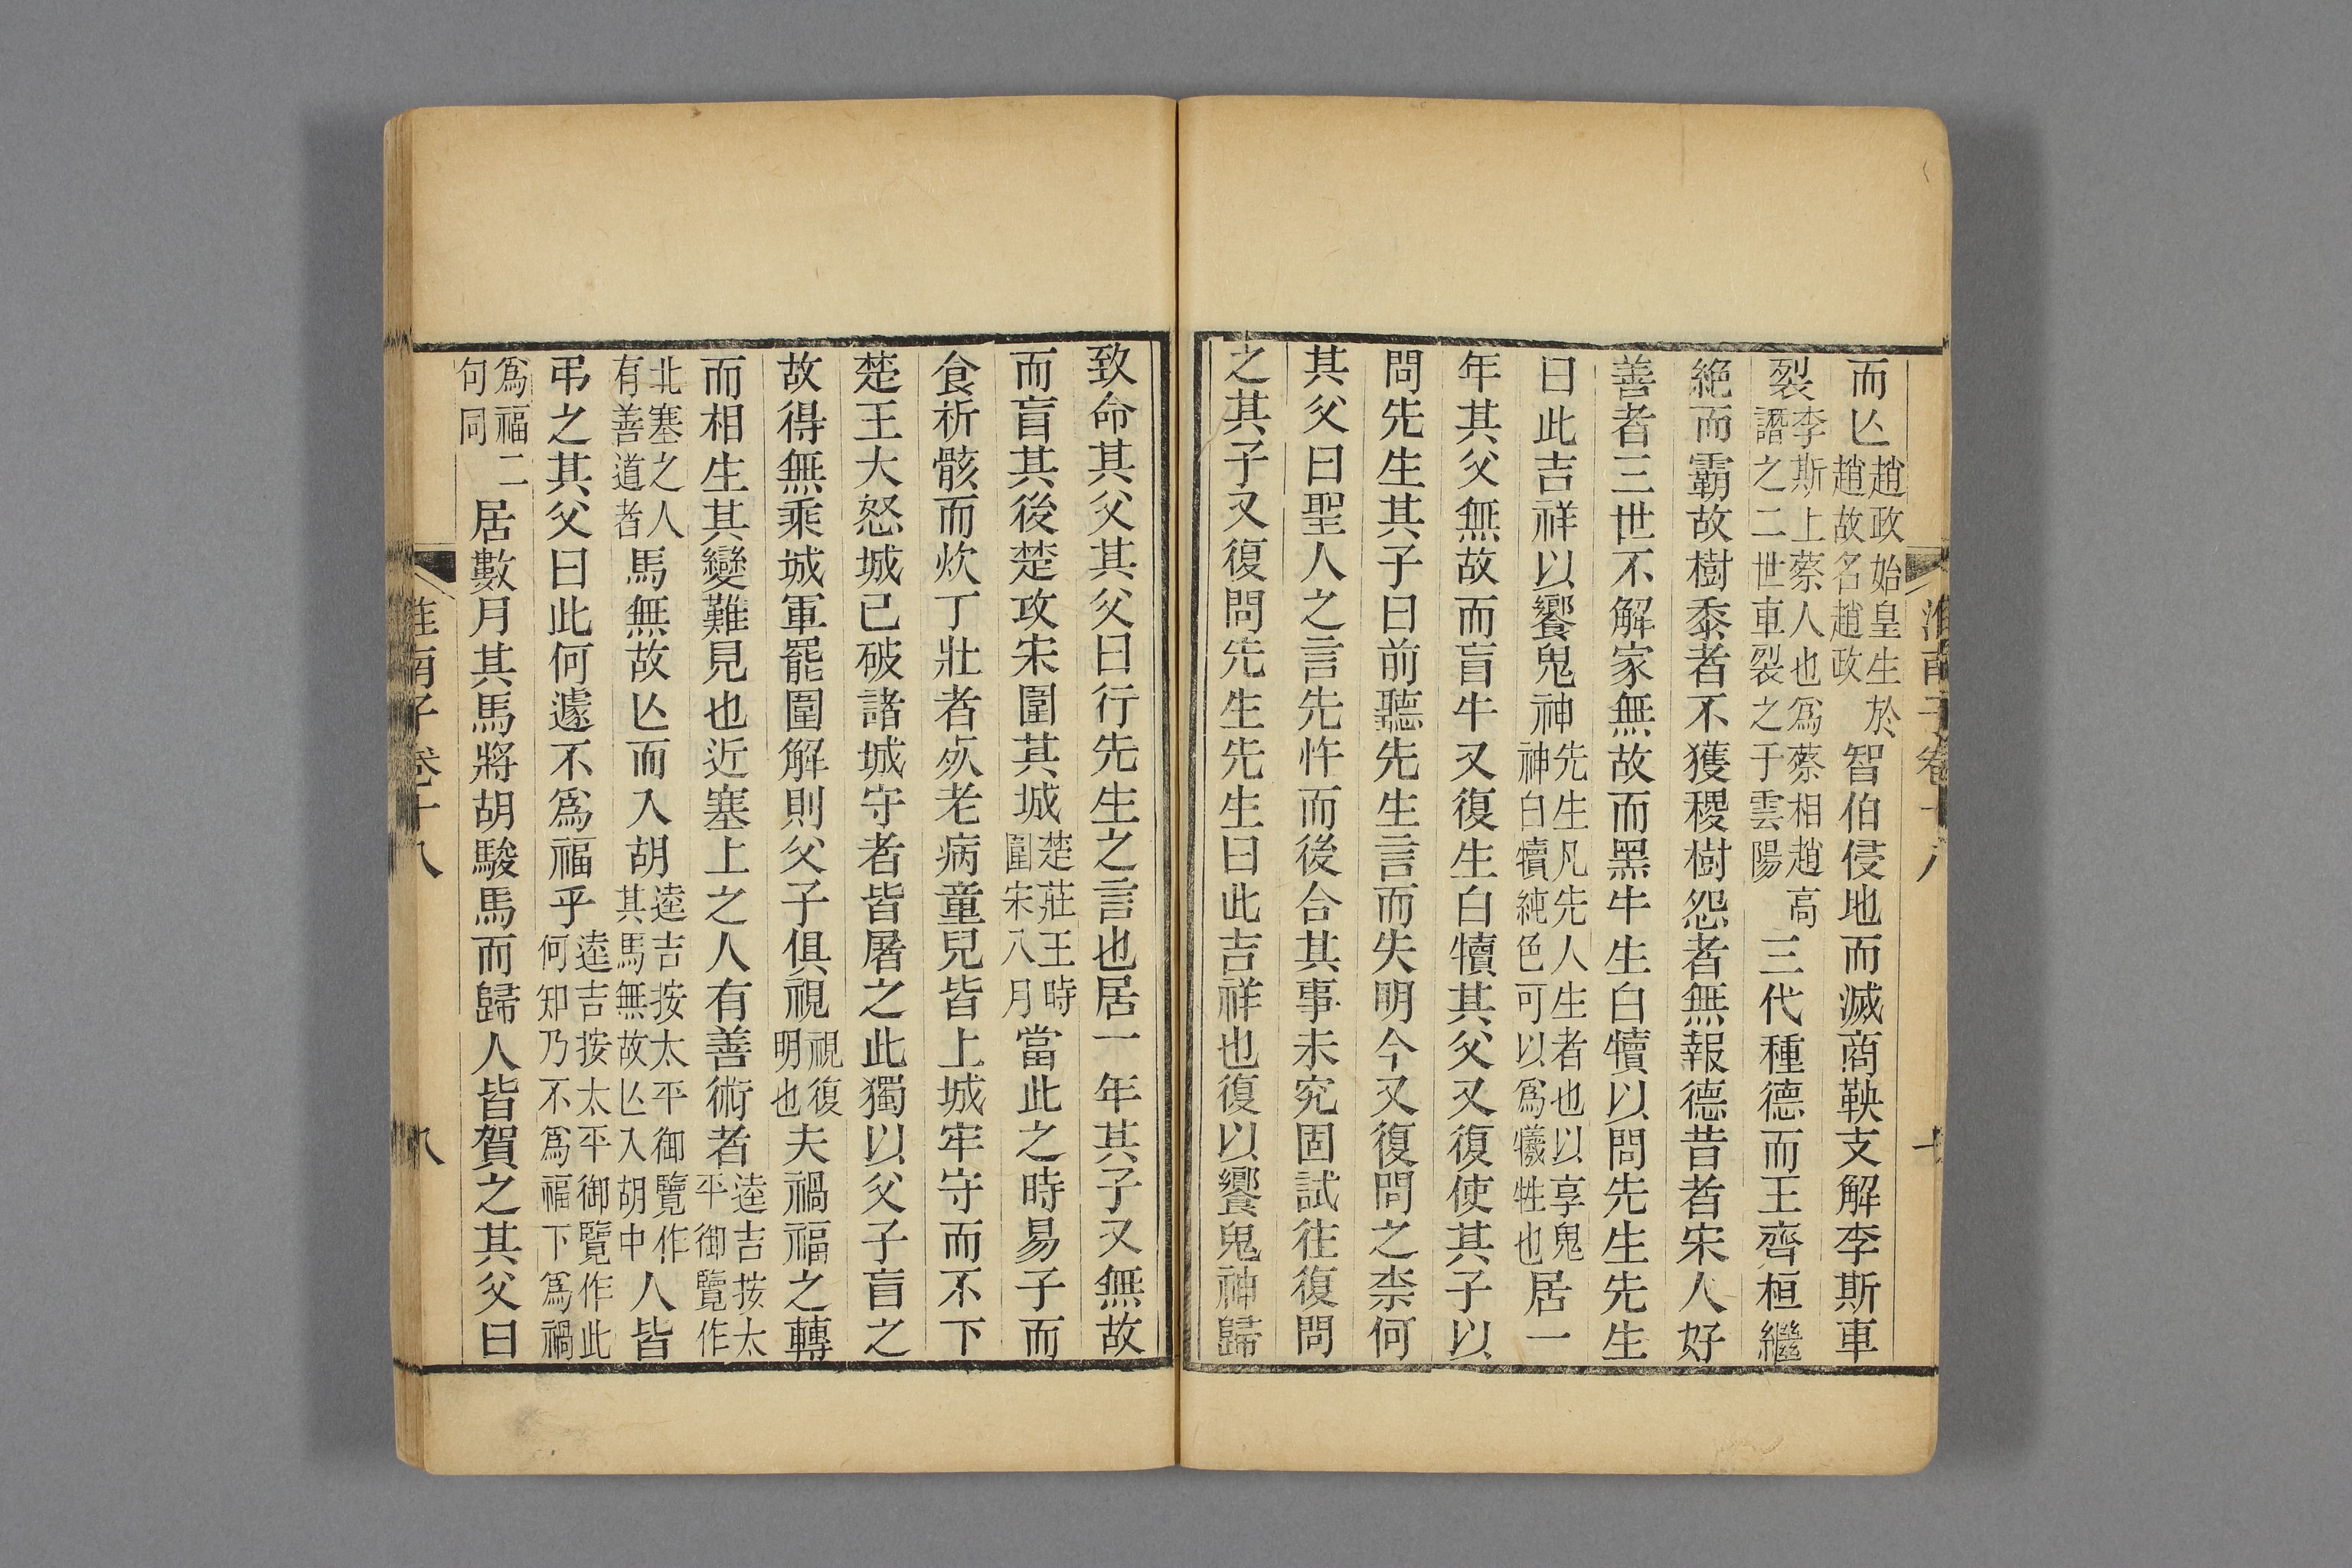 而亾趙政始皇生於趙故名趙政智伯侵地而滅商鞅支解李斯車
裂李斯上蔡人也爲蔡相趙高譖之二世車裂之于雲陽三代種德而王齊桓繼
絶而霸故樹黍者不獲稷樹怨者無報德昔者宋人好
善者三世不解家無故而黑牛生白犢以問先生先生
曰此吉祥以饗鬼神先生凡先人生者也以享鬼神白犢純色可以爲犧牲也居一
年其父無故而盲牛又復生白犢其父又復使其子以
問先生其子曰前聽先生言而失明今又復問之柰何
其父曰聖人之言先忤而後合其事未究固試往復問
之其子又復問先生先生曰此吉祥也復以饗鬼神歸
致命其父其父曰行先生之言也居一年其子又無故
而盲其後楚攻宋圍其城楚莊王時圍宋八月當此之時易子而
食析骸而炊丁壯者死老病童兒皆上城牢守而不下
楚王大怒城已破諸城守者皆屠之此獨以父子盲之
故得無乘城軍罷圍解則父子俱視視復明也夫禍福之轉
而相生其變難見也近塞上之人有善術者逵吉按太平御覽作
北塞之人有善道者馬無故亾而入胡逵吉按太平御覽作其馬無故亾入胡中人皆
弔之其父曰此何遽不爲福乎逵吉按太平御覽作此何知乃不爲福下爲禍
爲福二句同居數月其馬將胡駿馬而歸人皆賀之其父曰
淮南子卷十八
八
淮南子卷十八
七